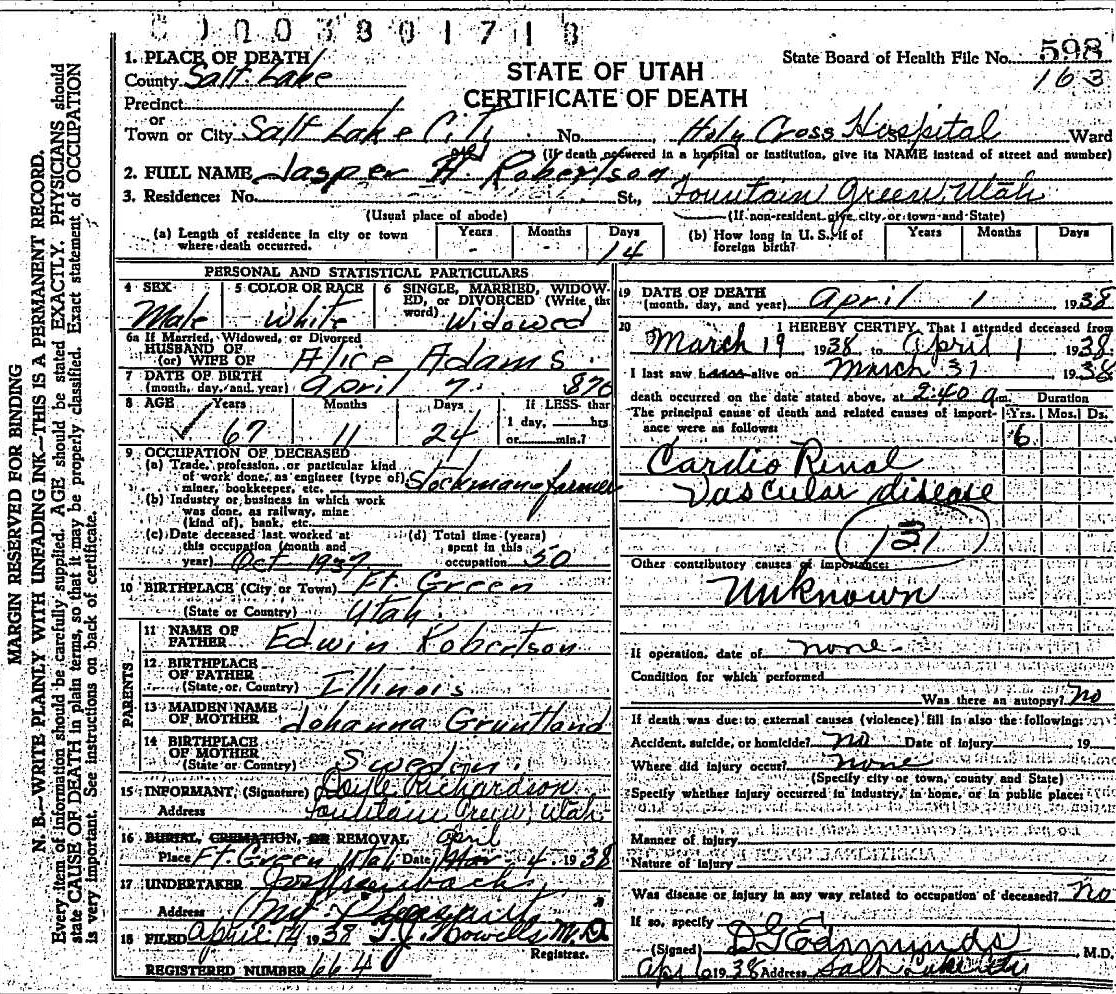 State Board of Health File No. 598
163
STATE OF UTAH
CERTIFICATE OF DEATH
1. PLACE OF DEATH
County Salt Lake
Precinct
or
Town or City Salt Lake City No. Holy Cross Hospital Ward
(If death occurred in a hospital or institution, give its NAME instead of street and number)
2. FULL NAME Jasper A. Robertson
3. Residence: No. St., Fountain Green, Utah
(Usual place of abode) (If non-resident give city or town and State)
(a) Length of residence in city or town where death occurred. Years - Months - Days 14
(b) How long in U. S. if of foreign birth? Years Months Days
PERSONAL AND STATISTICAL PARTICULARS
4 SEX Male
5 COLOR OR RACE White
6 SINGLE, MARRIED, WIDOWED, or DIVORCED (Write the word) Widowed
6a If Married, Widowed, or Divorced
HUSBAND OF
(or) WIFE OF Alice Adams
7 DATE OF BIRTH
(month, day, and year) April 7. 870
8 AGE Years 67 Months 11 Days 24
If LESS than 1 day, hrs or min.?
9 OCCUPATION OF DECEASED
(a) Trade, profession, or particular kind of work done, as engineer (type of) miner, bookkeeper, etc. Stockman farmer
(b) Industry or business in which work was done, as railway, mine (kind of), bank, etc.
(c) Date deceased last worked at this occupation (month and year) Oct 1937
(d) Total time (years) spent in this occupation 50
10 BIRTHPLACE (City or Town) Ft. Green
(State or Country) Utah
PARENTS
11 NAME OF FATHER Edwin Robertson
12 BIRTHPLACE OF FATHER
(State or Country) Illinois
13 MAIDEN NAME OF MOTHER Johanna Gruntland
14 BIRTHPLACE OF MOTHER
(State or Country) Sweden
15 INFORMANT (Signature) Doyle Richardson
Address Fountain Green, Utah
16 BURIAL, CREMATION, OR REMOVAL April
Place Ft. Green Utah Date Mar. 4. 1938
17 UNDERTAKER
Address Mt Pleasant
18 FILED April 14 1938 T.J. Howells M.D.
Registrar.
REGISTERED NUMBER 664
19 DATE OF DEATH
(month, day, and year) April 1 1938
20 I HEREBY CERTIFY, That I attended deceased from
March 19 1938 to April 1 1938
I last saw h alive on March 31 1938
death occurred on the date stated above, at 2:40 a m. Duration
The principal cause of death and related causes of importance were as follows: Yrs. Mos. Ds.
6
Cardio Renal
Vascular disease
131
Other contributory causes of importance:
Unknown
If operation, date of none
Condition for which performed
Was there an autopsy? No
If death was due to external causes (violence) fill in also the following:
Accident, suicide, or homicide? no Date of injury 19
Where did injury occur? none
(Specify city or town, county and State)
Specify whether injury occurred in industry, in home, or in public place:
Manner of Injury
Nature of injury
Was disease or injury in any way related to occupation of deceased? No
If so, specify
(Signed) D G Edmunds, M.D.
Apr 6 1938 Address Salt Lake City
MARGIN RESERVED FOR BINDING
N. B.—WRITE PLAINLY WITH UNFADING INK—THIS IS A PERMANENT RECORD.
Every item of information should be carefully supplied. AGE should be stated EXACTLY. PHYSICIANS should
state CAUSE OF DEATH in plain terms, so that it may be properly classified. Exact statement of OCCUPATION
is very important. See instructions on back of certificate.